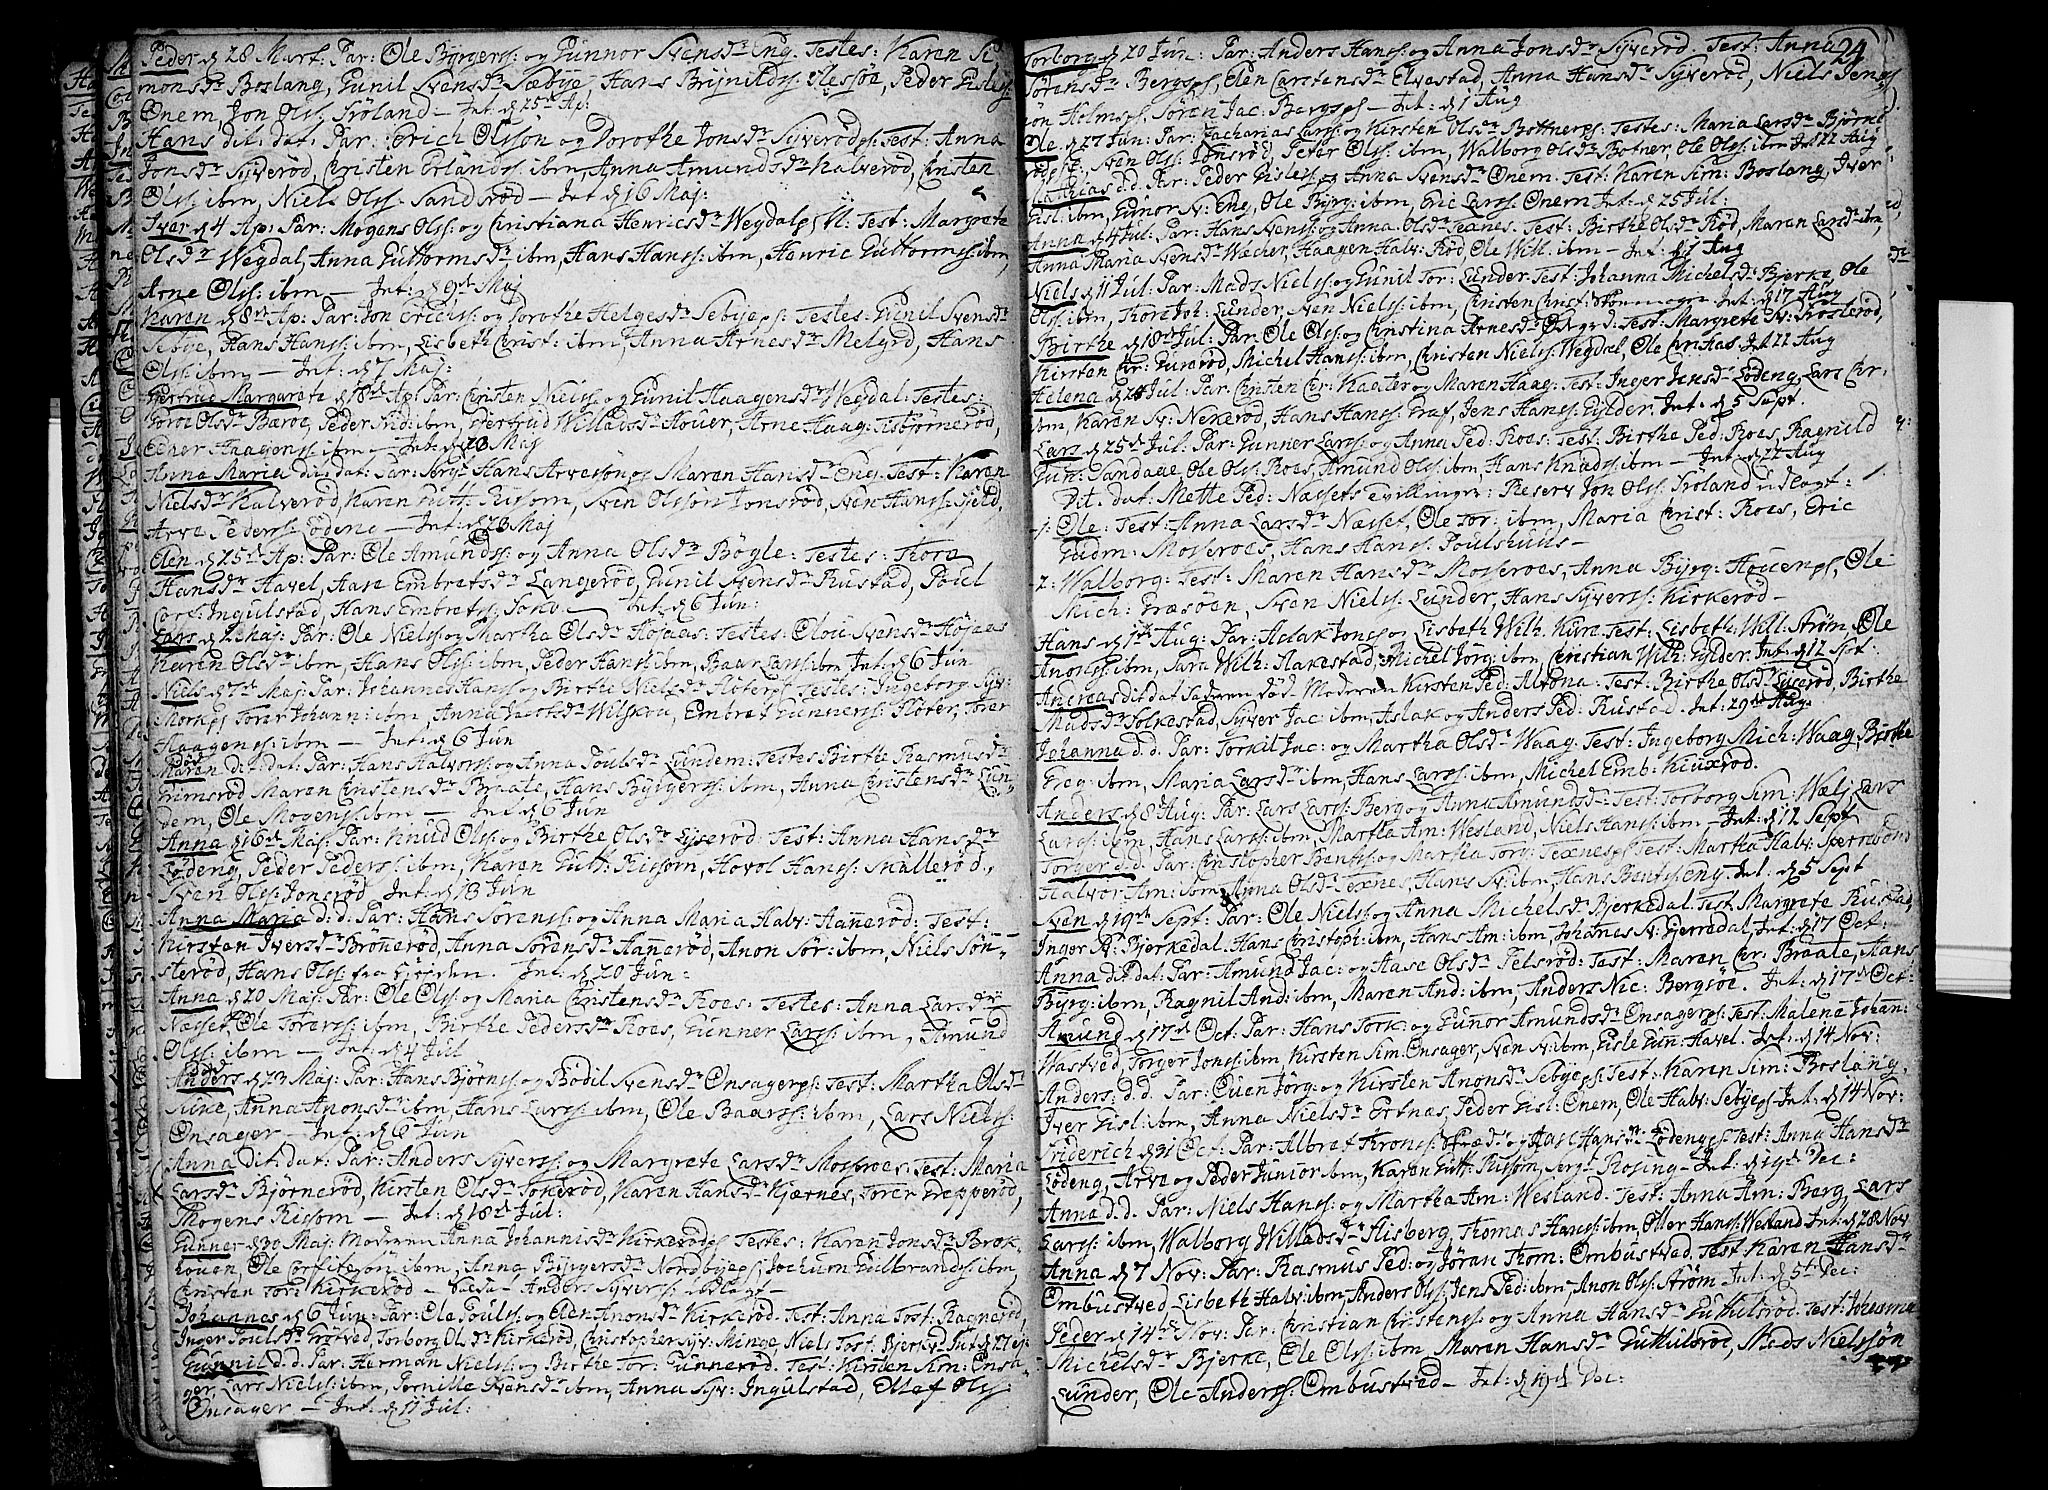 Peder d 28 Mart. Par: Ole Byrgerss: og Gunnor Svensdr Eng. Testes: Karen Si-
monsdr Boslang, Gunil Svensdr Sæbye, Hans Brynildss: Peder Gisless:
Onem, Jon Olss: Tröland — Int: d 25t Ap:
Hans dit: dat: Par: Erich Olsson og Dorothe Jonsdr Syverödps: Test: Anna
Jonsdr Syveröd, Christen Erlandss: ibm, Anna Amundsdr Kalveröd, Christen
Olss: ibm, Niels Olss: Sandröd — Int d 16 Maj:
Iver d 4 Ap: Par: Mogens Olss: og Christiana Henricsdr Wegdalps: Test: Margrete
Olsdr Wegdal, Anna Guttormsdr ibm, Hans Hanss: ibm, Henric Guttormss: ibm,
Arne Olss: ibm — Int: d 9de Maj
Karen d 8de Ap: Par: Jon Ericss: og Dorothe Helgesdr Sebyeps: Testes: Gunil Svensdr
Sebye, Hans Hanss: ibm, Lisbeth Christ: ibm, Anna Arnesdr Melgrd, Hans
Olss: ibm — Int: d 7 Maj:
Gertrue Margarete d 18de Ap: Par: Christen Nielss: og Gunil Haagensdr Wegdal: Testes:
Goroe Olsdr Bæroe, Peder Nid: ibm, Gertrud Willadsdr Houer, Arne Haag: Tisbjörneröd,
Haagenss: ibm — Int: d 23 Maj
Anna Maria dit: dat: Par: Hans Arvesön og Maren Hansdr Eng. Test: Karen
Nielsdr Kalveröd, Karen Gutt: Rissom, Sven Olsson Jonsröd, Sven Hanss: Fjeld,
Arve Pederss: Lödene — Int: d 23 Maj
Elen d 25de Ap: Par: Ole Amundss: og Anna Olsdr Bögle: Testes: Thora
Hansdr Havel, Aase Embretsdr Langeröd, Gunil Svensdr Rustad, Poul
Corf: Ingulstad, Hans Embretss: — Int: d 6 Jun:
Lars d 2 Maj: Par: Ole Nielss: og Martha Olsdr Höjaas: Testes: Olou Svensdr Höjaas
Karen Olsdr ibm, Hans Olss: ibm, Peder Hanss: ibm, Baar Larss: ibm Int: d 6 Jun
Niels d 7de Maj: Par: Johannes Hanss: og Birthe Nielsdr Floterps: Testes: Ingeborg Syv:
Torer Johann: ibm, Anna Wilskou, Embret Gunnerss: Flöter, Torer
Haagenss: ibm — Int: d 6 Jun
död
Maren dit: dat: Par: Hans Halvorss: og Anna Poulsdr Lundem: Testes Birthe Rasmusdr
Grimsröd Maren Christensdr Braate, Hans Byrgerss: ibm, Anna Christensdr Lun-
dem, Ole Mogenss: ibm — Int: d 6 Jun
Anna d 16de Maj: Par: Knud Olss: og Birthe Olsdr Lyseröd: Test: Anna Hansdr
Lödeng, Peder Pederss: ibm, Karen Gutt: Rissom, Hovel Hanss: Skalleröd,
Sven Olss: Jonsröd Int: d 13 Jun
Anna Maria d: d: Par: Hans Sörenss: og Anna Maria Halv: Hanneröd: Test:
Kirsten Iversdr Brönneröd, Anna Sörensdr Haneröd, Anon Sör: ibm, Niels Sön-
steröd, Hans Olss: fra Int: d 20 Jun:
Anna d 20 Maj: Par: Ole Olss: og Maria Christensdr Roes: Testes: Anna Larsdr
Næsset, Ole Torerss: ibm, Birthe Pedersdr Roes, Gunner Larss: ibm, Amund
Olss: ibm — Int: d 4 Jul
död
Anders d 23 Maj: Par: Hans Björnss: og Bodil Svensdr Onsagerps: Test: Martha Olsdr
Anna Anonsdr ibm, Hans Larss: ibm, Ole Baarss: ibm, Lars Nielss:
Onsager — Int: d 6 Jun
Anna dit: dat: Par: Anders Syverss: og Margrete Larsdr Mosseroes: Test: Maria
Larsdr Björneröd, Kirsten Olsdr Tokeröd, Karen Hansdr Kjærnes, Torer Trepperöd,
Mogens Rissom — Int: d 18de Jul:
Gunner d 30 Maj: Moderen Anna Johannisdr Kirkerödps Testes: Karen Jonsdr Bræk-
kouen, Ole Corfitzsön ibm, Anna Byrgersdr Nordbyeps, Jochum Gulbrandss: ibm,
Christen Tors: Kirkeröd — Anders Syverss: udlagt —
Johannes d 6 Jun: Par: Ole Poulss: og Elen Anonsdr Kirkeröd. Test: Anna Tost: Ragneröd,
Inger Poulsdr Torborg Olsdr Kirkeröd, Christopher Syv: Minge, Niels Tost:
Gunnil d. d. Par: Herman Nielss: og Birthe Tor: Gunneröd. Test: Kirsten Sim: Onsa-
ger, Lars Nielss: ibm, Pernille Svensdr ibm, Anna Syv: Ingulstad, Ellef Olss:
Onsager — Int: d 11 Jul:
24
Torborg d 20 Jun: Par: Anders Hanss: og Anna Jonsdr Syveröd. Test: Anna
Sörensdr Bergsps, Elen Carstensdr Elvestad, Anna Hansdr Syveröd, Niels Jens
sön Holmsps, Sören Jac: Bergsps — Int: d 1 Aug
Ole d 27 Jun: Par: Zacharias Larss: og Kirsten Olsdr Bottnerps: Testes: Maria Larsdr Björne
rödps, Sven Olss: Jonsröd, Peter Olss: ibm, Walborg Olsdr Botner, Ole Olss: ibm Int 22 Aug
Mathias d. d. Par: Peder Gisless: og Anna Svensdr Onem. Test: Karen Sim: Boslang, Iver
Gisl: ibm, Gunor Sv: Eng, Ole Byrg: ibm, Eric Larss: Onem Int: d 25 Jul:
Anna d 4 Jul: Par: Hans Svenss: og Anna Olsdr Texnes. Test: Birthe Olsdr Röd, Maren Larsdr ibm,
Anna Maria Svensdr Wacher, Haagen Halv: Röd, Ole Will: ibm — Int: d 1 Aug
Niels d 11 Jul: Par: Mads Nielss: og Gunil Tor: Lunder Test: Johanna Michelsdr Bjerke, Ole
Olss: ibm, Thore Joh: Lunder, Sven Nielss: ibm, Christen Christ: Int: d 17 Aug
Birthe d 18de Jul: Par: Ole Olss: og Christina Arnesdr Test: Margrete Sv: Trosteröd,
Kirsten Chr: Guneröd, Michel Hanss: ibm, Christen Nielss: Wegdal, Ole Int: 22 Aug
Helena d Jul: Par: Christen Chr: Kaater og Maren Haag: Test: Inger Jensdr Lödeng, Lars Chr.
ibm, Karen Sv: Nekeröd, Hans Hanss: Graf, Jens Hanss: Gylder. Int: d 5 Sept.
Lars d 25de Jul: Par: Gunner Larss: og Anna Ped: Roes: Test: Birthe Ped: Roes, Ragnild
Gun: Sandage, Ole Olss: Roes, Amund Olss: ibm, Hans Knudss: ibm — Int: d 22 Aug
Dit: dat: Mette Ped: Næssets tvillinger: Reserv Jon Olss: Tröland udlagt:
1: Ole: Test: Anna Larsdr Næsset, Ole Tor: ibm, Maria Christ: Roes, Eric
Gudm: Mosseroes, Hans Hanss: Poulshuus —
2: Walborg: Test: Maren Hansdr Mosseroes, Anna Byrg: Houcenps, Ole
Mich: Græsöen, Sven Nielss: Lunder, Hans Syverss: Kirkeröd —
Hans d 1ste Aug: Par: Aslak Jonss: og Lisbeth Wilh: Kure. Test: Lisbeth Will: Ström, Ole
Anonss: ibm, Sara Wilh: Hakestad, Michel Jörg: ibm, Christian Wilh: Gylder. Int: d 12 Sept.
Andreas dit dat Faderen död — Moderen Kirsten Ped: Altona. Test: Birthe Olsdr Lyseröd, Birthe
Madsdr Folkestad, Syver Jac: ibm, Aslak og Anders Ped: Rustad. Int: 29de Aug
Johanna d. d. Par: Torkil Jac: og Martha Olsdr Waag. Test: Ingeborg Mich: Waag, Birthe
Greg: ibm, Maria Larsdr ibm, Hans Larss: ibm, Michel Emb: Kiuxröd.
Anders d 8 Aug: Par: Lars Larss: Berg og Anna Amundsdr Test: Torborg Sim: Lars
Larss: ibm, Hans Larss: ibm, Martha Am: Wesland, Niels Hanss: ibm — Int: d 12 Sept
Torger d. d. Par: Christopher Bentss: og Martha Torg: Texnesps Test: Martha Halv:
Halvor Am: ibm, Anna Olsdr Texnes, Hans Sv: ibm, Hans Bentss: Eng. Int. d 5 Sept
Sven d 19de Sept: Par: Ole Nielss: og Anna Michelsdr Bjerkedal. Test: Margrete Rustad,
Inger Bjerkedal. Hans Christoph: ibm, Hans Am: ibm, Johanes Sv: Bjerkedal, Int: d 17 Oct:
Anna dit dat: Par: Amund Jac: og Aase Olsdr Pelsröd: Test: Maren Chr: Braate, Hans
Byrg: ibm, Ragnil And: ibm, Maren And: ibm, Anders Nic: Bergsöe. Int: d 17de Oct:
Amund d 17de Oct. Par: Hans Tork: og Gunnor Amundsdr Onsagerps: Test: Malena Johan:
Wastved, Torger Jonss: ibm, Kirsten Sim: Onsager, Sven Sv: ibm, Gisle Gun: Havel. Int: d 14 Nov:
Anders: d. d. Par: Ouen Jörg: og Kirsten Anonsdr Sebyeps: Test: Karen Sim: Boslang,
Iver Gisl: ibm, Anna Nielsdr Ertnæs, Peder Gisl: Onem, Ole Halv: Sebyeps Int: d 14 Nov:
Friderich d 31 Oct: Par: Albret Frons: og Aase Hansdr Lödengps Test: Anna Hansdr
Lödeng, Arve og Peder Junior ibm, Karen Gutt: Rissom, Rosing — Int: d 19de Dec:
Anna d. d. Par: Niels Hanss: og Martha Am: Wesland. Test: Anna Am: Berg, Lars
Larss: ibm, Walborg Willadsdr Flisberg, Thomas Hanss: ibm, Oller Hanss: Wesland Int: d 28 Nov
Anna d 7 Nov: Par: Rasmus Ped: og Jöran Thom: Ombustved. Test Karen Hansdr
Ombustved Lisbeth Halv: ibm, Anders Olss: Jens Ped: ibm, Anon Olss: Ström Int: d 5te Dec:
Peder d 14de Nov: Par: Christian Christenss: og Anna Hansdr Guthulsröd. Test: Johanna
Michelsdr Bjerke, Ole Olss: ibm, Maren Hansdr Guthulsröd, Mads Nielssön
Lunder, Ole Anderss: Ombustved — Int: d 19de Dec: